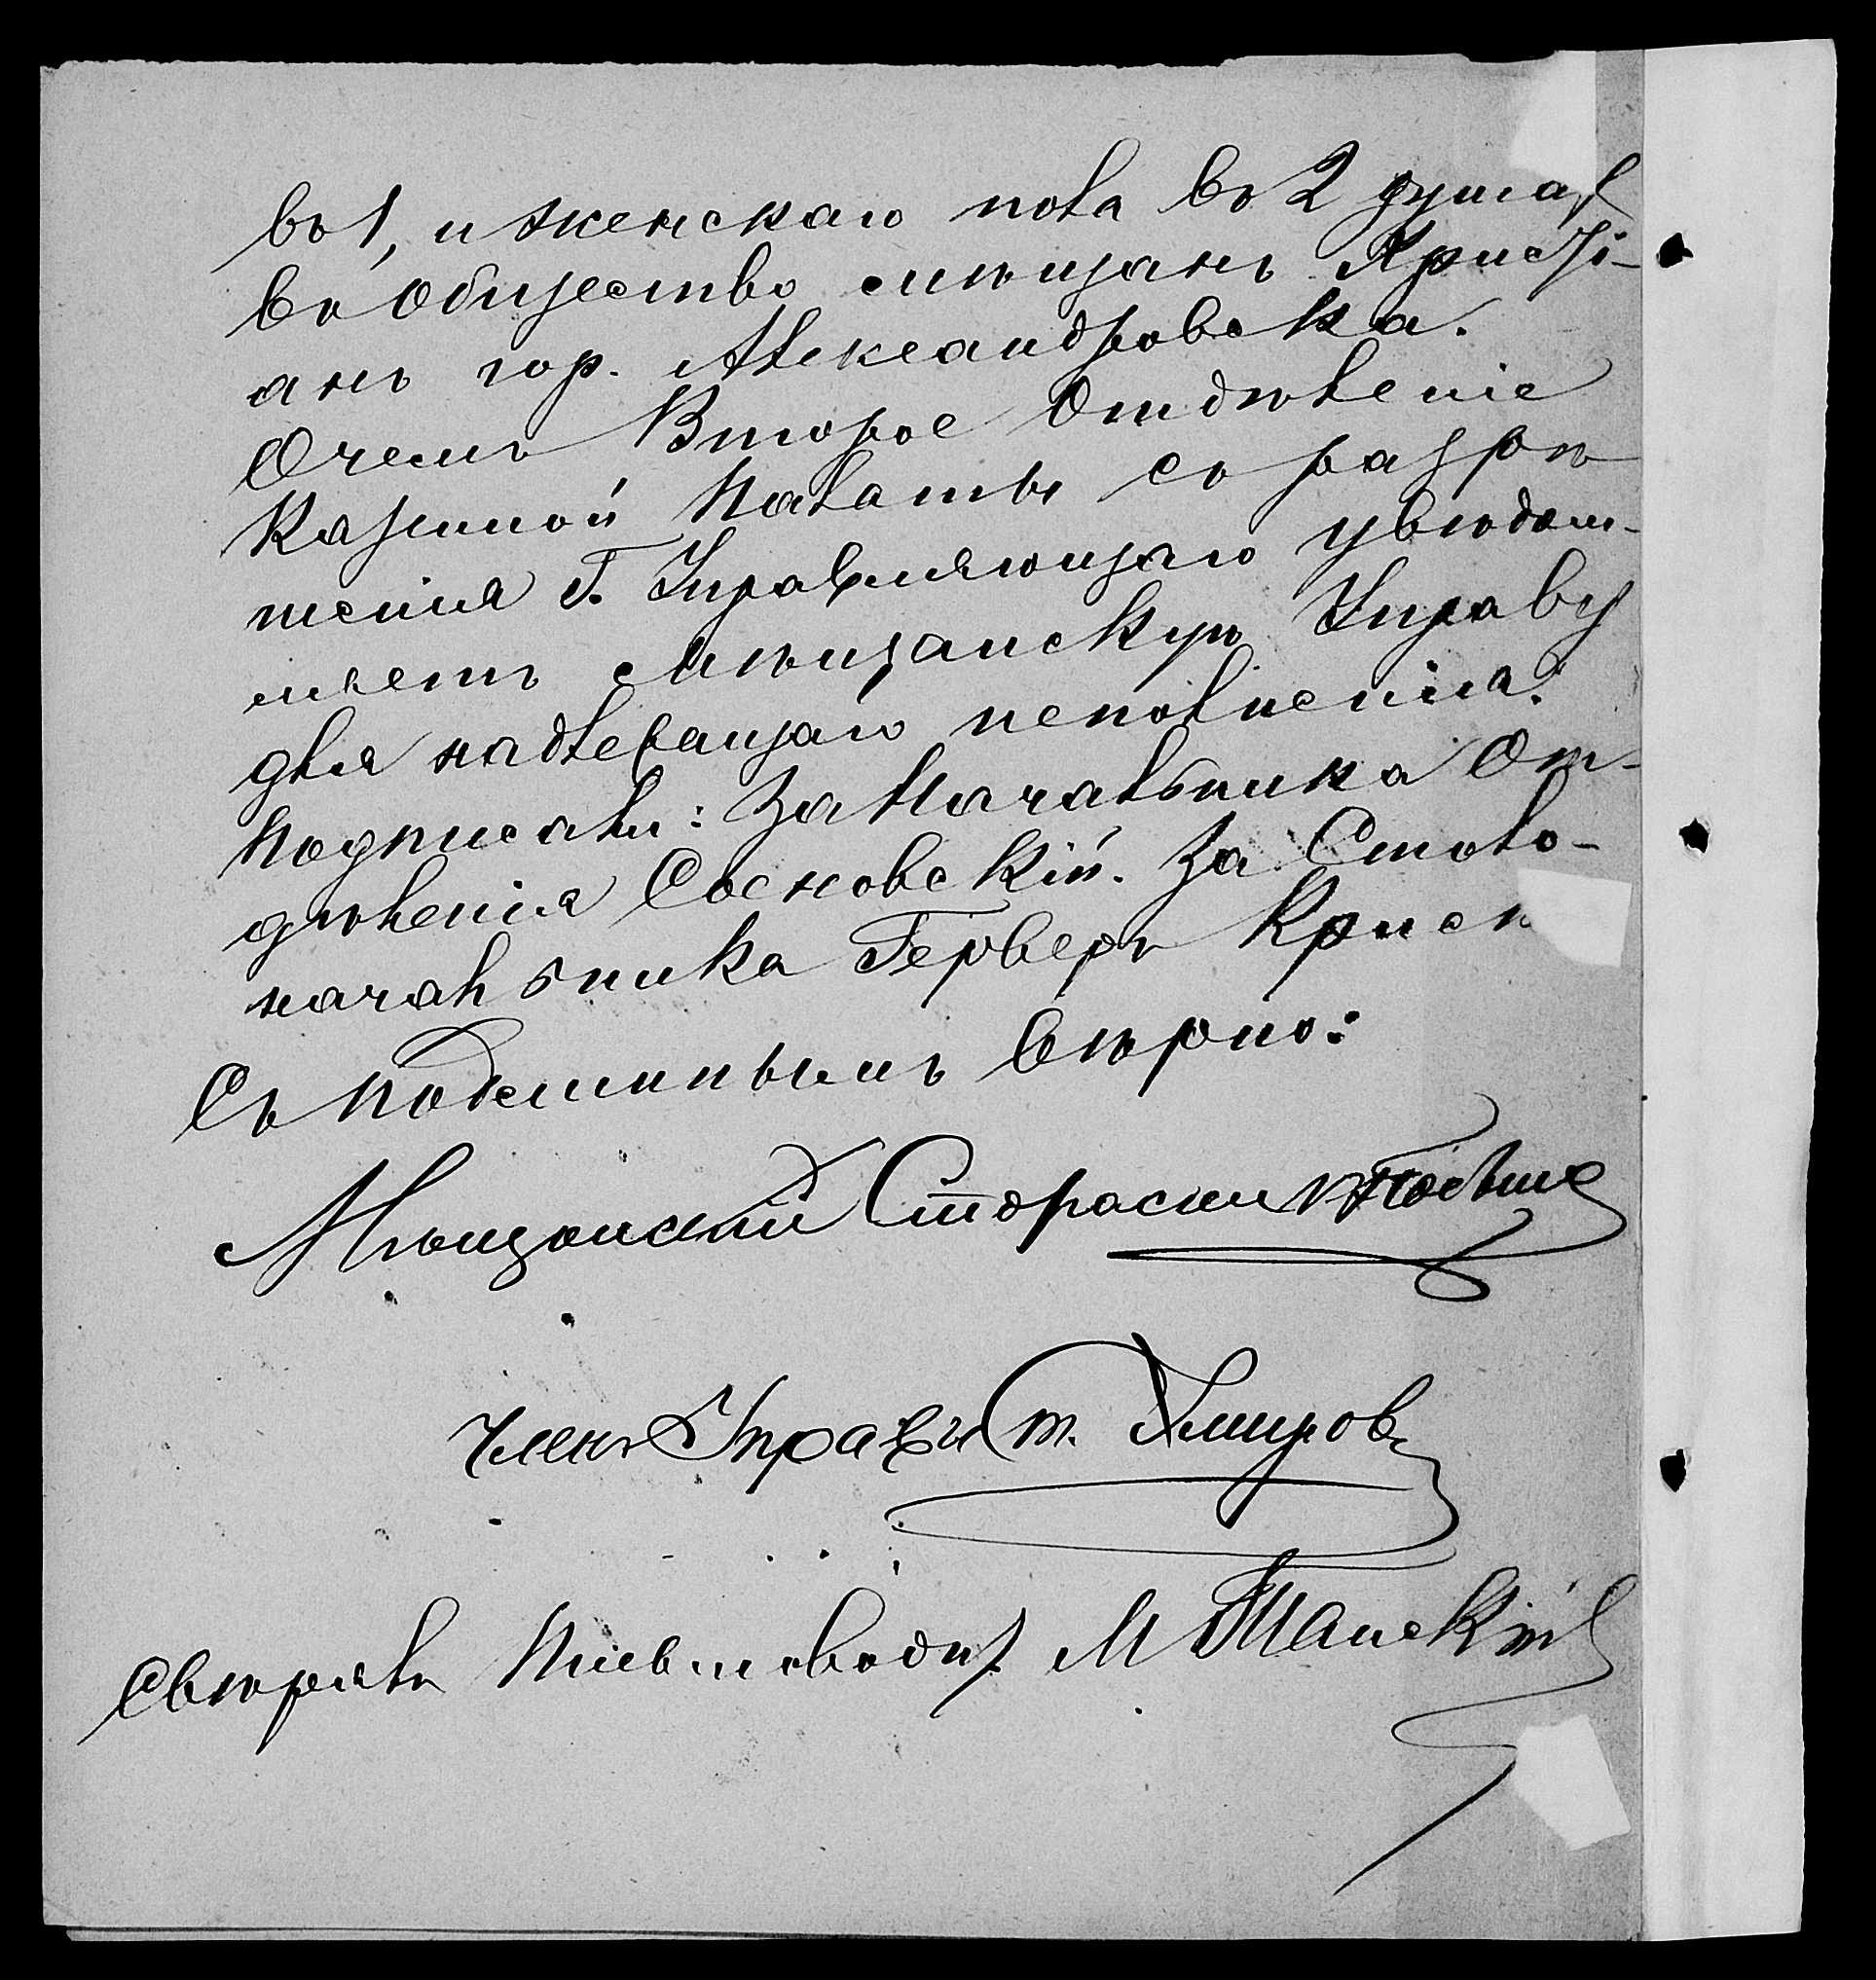 въ 1, и женскаго пола въ 2 душах
въ общество мѣщанъ Христі-
анъ гор. Александровска.
О чемъ Второе Отдѣленіе
Казенной Палаты съ разрѣ
шенія Г. Управляющаго увѣдом-
ляетъ Мѣщанскую Управу
для надлежащаго исполненія.
Подписали: За Начальника От-
дѣленія Сосновскій. За Столо-
начальника Герберъ Крисъ
Съ подлиннымъ вѣрно:
Мѣщанскій Староста
Членъ Управы
Свѣрялъ Письмоводит. М